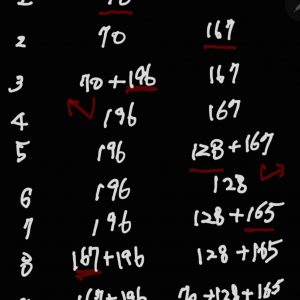 2 70 167
3 70+196 167
4 196 167
5 196 128+167
6 196 128
7 196 128+165
8 167+196 128+165